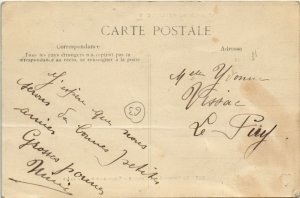 CARTE POSTALE
Correspondance
Tous les pays étrangers n'acceptent pas la
correspondance au recto, se renseigner à la poste
Adresse
J'espère que nous
serons de bonnes petites
amies
Grosses
63
Melle Yvonne
Vissac
Le Puy